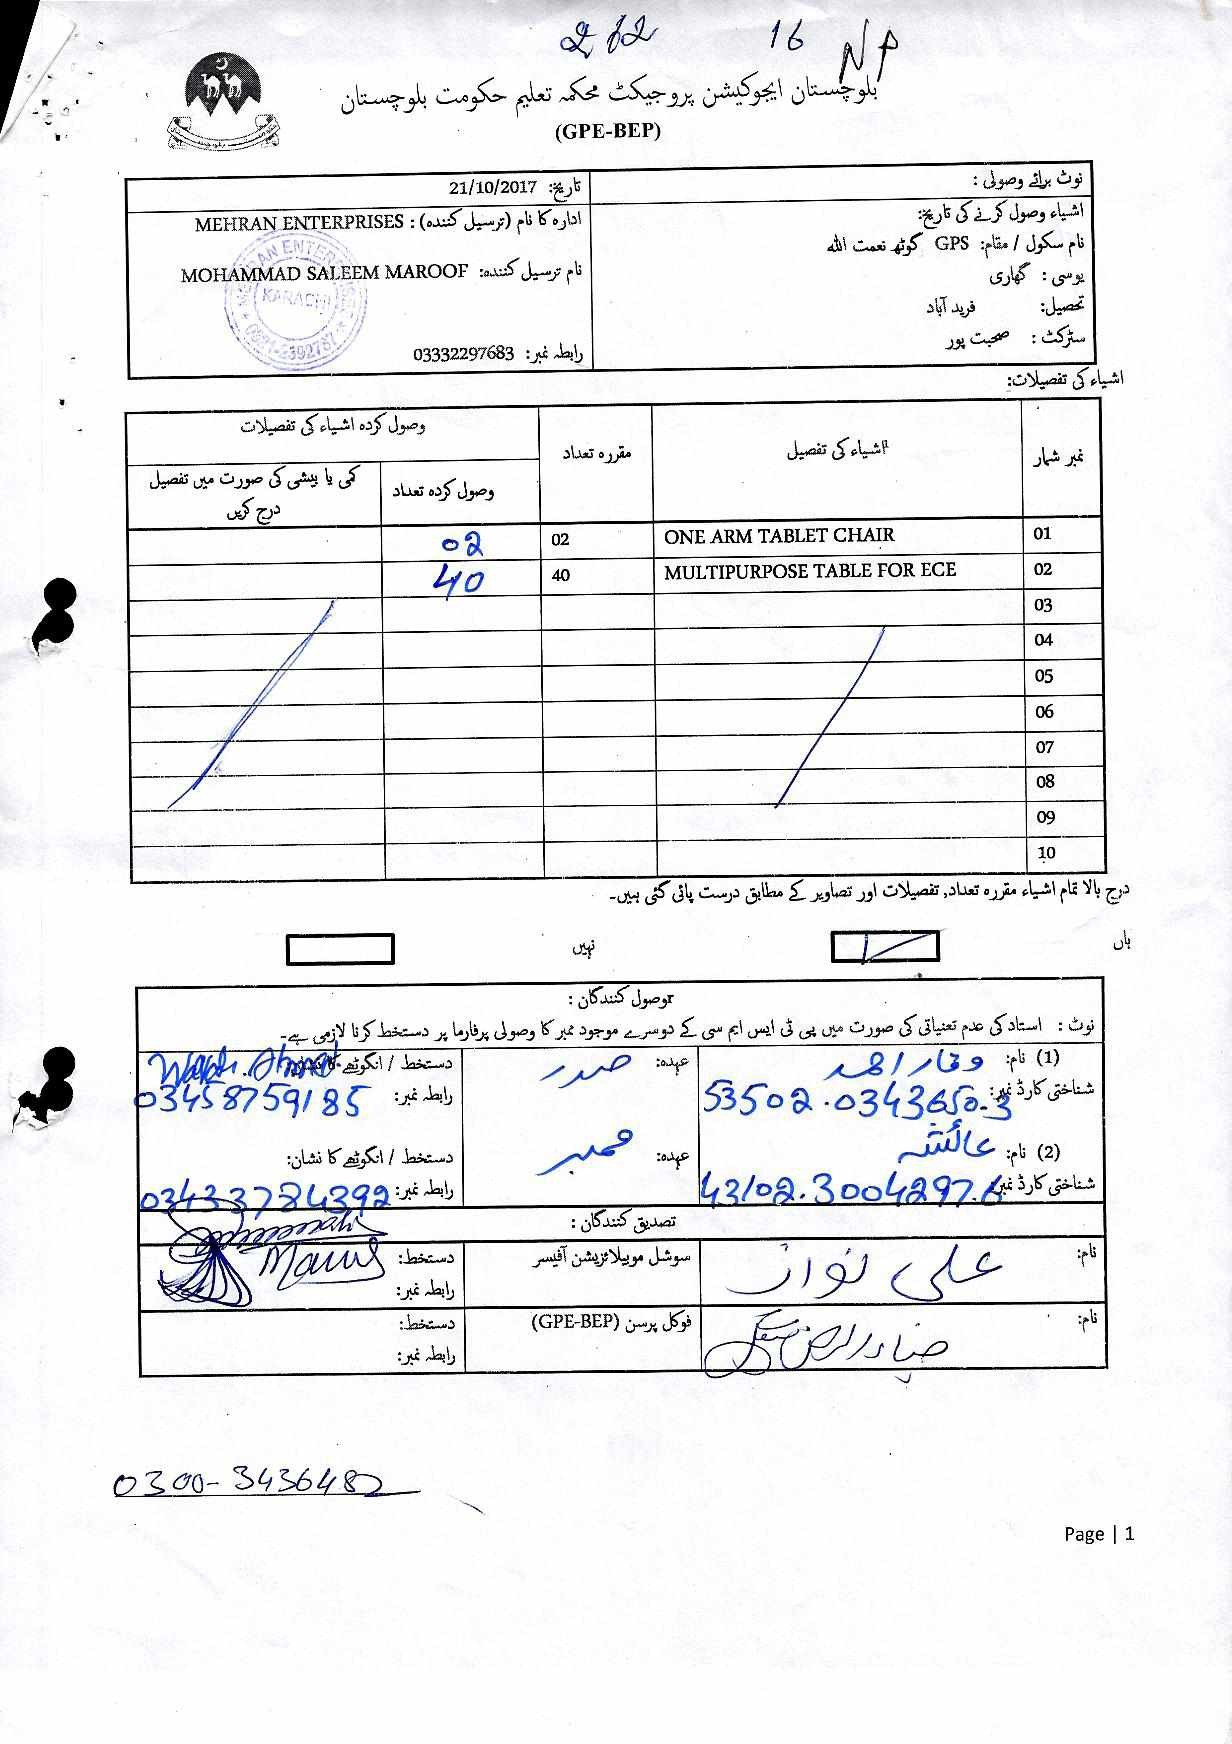 262 16 NP
بلوچستان ایجوکیشن پروجیکٹ محکمہ تعلیم حکومت بلوچستان
(GPE-BEP)
نوٹ برائے وصولی :
تاریخ: 21/10/2017
اشیاء وصول کرنے کی تاریخ:
ادارہ کا نام (ترسیل کنندہ) : MEHRAN ENTERPRISES
نام سکول / مقام: GPS گوٹھ نعمت اللہ
نام ترسیل کنندہ: MOHAMMAD SALEEM MAROOF
یوسی : گھاری
تحصیل: فرید آباد
سٹرکٹ : صحبت پور
رابطہ نمبر: 03332297683
KARACHI
اشیاء کی تفصیلات:
نمبر شمار اشیاء کی تفصیل مقررہ تعداد وصول کردہ اشیاء کی تفصیلات
وصول کردہ تعداد کمی یا بیشی کی صورت میں تفصیل درج کریں
01 ONE ARM TABLET CHAIR 02 02
02 MULTIPURPOSE TABLE FOR ECE 40 40
03
04
05
06
07
08
09
10
درج بالا تمام اشیاء مقررہ تعداد, تفصیلات اور تصاویر کے مطابق درست پائی گئی ہیں۔
ہاں نہیں
وصول کنندگان :
نوٹ : استاد کی عدم تعنیاتی کی صورت میں پی ٹی ایس ایم سی کے دوسرے موجود ممبر کا وصولی پرفارما پر دستخط کرنا لازمی ہے۔
(1) نام: وقار احمد عہدہ: صدر دستخط / انگوٹھے کا نشان: Waqar Ahmad
شناختی کارڈ نمبر: 53502.0343650.3 رابطہ نمبر: 03458759185
(2) نام: عائشہ عہدہ: ممبر دستخط / انگوٹھے کا نشان:
شناختی کارڈ نمبر: 43102.3004297.6 رابطہ نمبر: 03433784392
تصدیق کنندگان :
نام: علی نواز سوشل موبیلائزیشن آفیسر دستخط:
رابطہ نمبر:
نام: فوکل پرسن (GPE-BEP) دستخط:
رابطہ نمبر:
0300-3436482
Page | 1